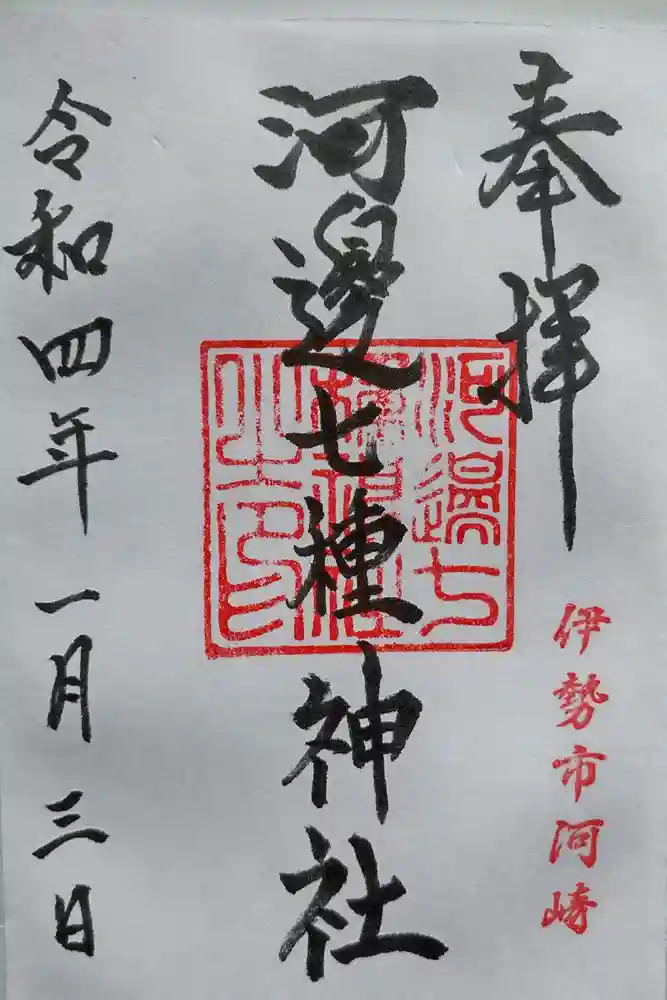 奉拝
伊勢市河崎
河邊七種神社
河邊七種神社之印
令和四年一月三日